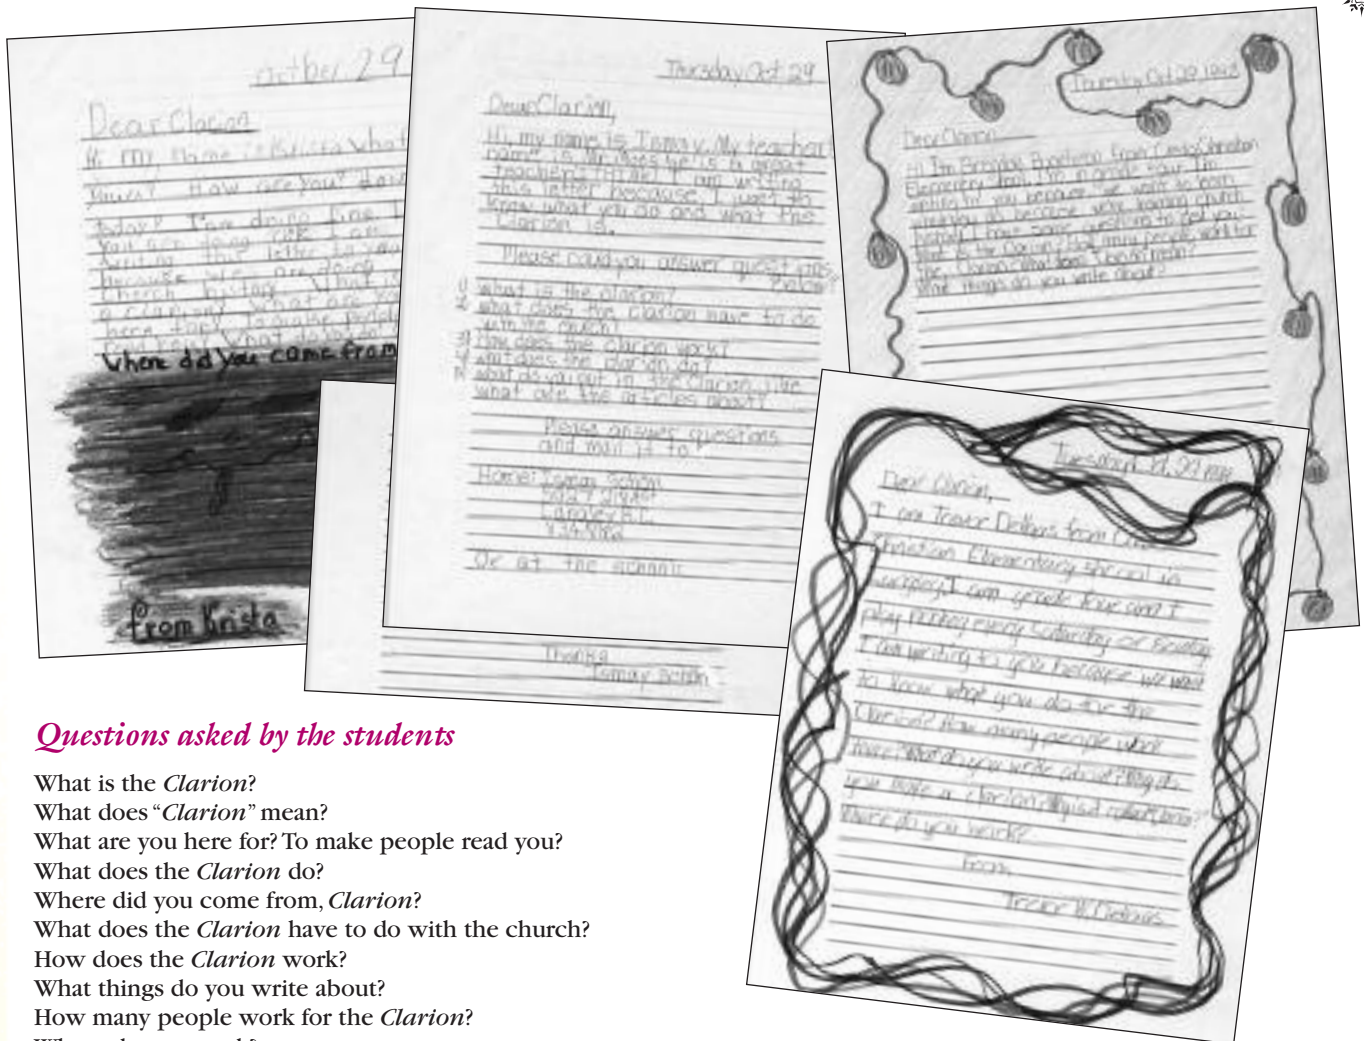 october 29
Dear Clarion
Hi my name is Krista what
yours? How are you? 
today? I'm doing fine. I
you are doing fine I am
writing this letter to you
because we are doing
church history. What is
a clarion? What are you
here for? To make people
read you? What
Where did you come from
from Krista
Thursday Oct. 29
Dear Clarion,
Hi, my name is Ismay. My teacher
name is Mr. he is a great
teacher I am writing
this letter because, I want to
know what you do and what the
Clarion is.
Please could you answer questions
below?
1 what is the clarion?
2 what does the clarion have to do
with the church?
3 How does the clarion work?
4 what does the clarion do?
5 what do you put in the Clarion like
what are the articles about?
Please answer questions
and mail it to
Home: Ismay Schön
Langley B.C.
Or at the school:
Thanks
Ismay Schön
Thursday Oct 29,
Dear Clarion
Hi I'm from Credo Christian
Elementary School. I'm in grade four. I'm
writing to you because we want to learn
what you do because we're learning church
history. I have some questions to ask you.
What is the Clarion? How many people work for
the Clarion? What does Clarion mean?
What things do you write about?
Dear Clarion,
I am Trevor from
Christian Elementary school in
Langley. I am grade four and I
play hockey every Saturday or Sunday
I am writing to you because we want
to know what you do for the
Clarion? How many people work
there? What do you write about?
you make a clarion
Where do you work?
From,
Trevor
Questions asked by the students
What is the Clarion?
What does “Clarion” mean?
What are you here for? To make people read you?
What does the Clarion do?
Where did you come from, Clarion?
What does the Clarion have to do with the church?
How does the Clarion work?
What things do you write about?
How many people work for the Clarion?